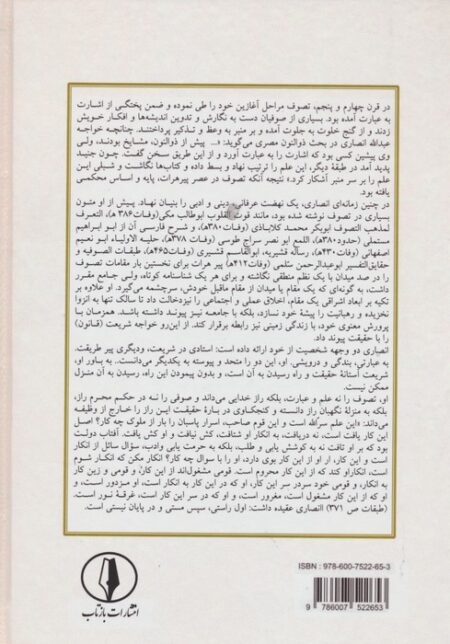 در قرن چهارم و پنجم، تصوف مراحل آغازین خود را طی نموده و ضمن پختگی از اشارت
به عبارت آمده بود. بسیاری از صوفیان دست به نگارش و تدوین اندیشه‌ها و افکار خویش
زدند و از کنج خلوت به جلوت آمده و بر منبر به وعظ و تذکیر پرداختند. چنانچه خواجه
عبدالله انصاری در بحث ذوالنون مصری می‌گوید: «... پیش از ذوالنون، مشایخ بودند، ولی
وی پیشین کسی بود که اشارت را به عبارت آورد و از این طریق سخن گفت. چون جنید
پدید آمد در طبقهٔ دیگر، این علم را ترتیب نهاد و بسط داده و کتاب‌ها نگاشت و شبلی این
علم را بر سر منبر آشکار کرد.» نتیجه آنکه تصوف در عصر پیرهرات، پایه و اساس محکمی
یافته بود.
در چنین زمانه‌ای انصاری، یک نهضت عرفانی، دینی و ادبی را بنیان نهاد. پیش از او متون
بسیاری در تصوف نوشته شده بود، مانند قوت القلوب ابوطالب مکی(وفات۳۸۶ ه)، التعرف
لمذهب التصوف ابوبکر محمد کلاباذی (وفات۳۸۰ه)، و شرح فارسی آن از ابو ابراهیم
مستملی (حدود۳۸۰ه)، اللمع ابو نصر سراج طوسی (وفات ۳۷۸ه)، حلیه الاولیاء ابو نعیم
اصفهانی (وفات۴۳۰ه)، رساله قشیریه، ابوالقاسم قشیری (وفات۴۶۵ه)، طبقات الصوفیه و
حقایق‌التفسیر ابوعبدالرحمن سلمی (وفات۴۱۲ه) پیر هرات برای نخستین بار مقامات تصوف
را در صد میدان با یک نظم منطقی نگاشته و برای هر یک شناسنامه کوتاه، ولی جامع مقرر
داشت، به گونه‌ای که یک مقام یا میدان از مقام ماقبل خودش، سرچشمه می‌گیرد. او علاوه بر
تکیه بر ابعاد اشراقی یک مقام، اخلاق عملی و اجتماعی را نیزدخالت داد تا سالک تنها به انزوا
نخزیده و رهبانیت را پیشهٔ خود نسازد، بلکه با جامعه نیز پیوند داشته باشد. همزمان با
پرورش معنوی خود، با زندگی زمینی نیز رابطه برقرار کند. از این‌رو خواجه شریعت (قانون)
را با حقیقت پیوند داد.
انصاری دو وجهه شخصیت از خود ارائه داده است: استادی در شریعت، ودیگری پیر طریقت.
به عبارتی، بندگی و درویشی. او، این دو را متحد و پیوسته به یکدیگر می‌دانست.. به باور او،
شریعت آستانهٔ حقیقت و راه رسیدن به آن است، و بدون پیمودن این راه، رسیدن به آن منزل
ممکن نیست.
او، تصوف را نه علم و عبارت، بلکه راز خدایی می‌داند و صوفی را نه در حکم محرم راز،
بلکه به منزلهٔ نگهبان راز دانسته و کنجکاوی در بارهٔ حقیقت این راز را خارج از وظیفه
می‌داند: «این علم سرّالله است و این قوم صاحب، اسرار پاسبان را باز از ملوک چه کار؟ اصل
این کار یافت است، نه دریافت، به انکار او شتافت، کش نیافت و او کش یافت. آفتاب دولت
بود که بر او تافت نه به کوشش یابی و طلب، بلکه به حرمت یابی وادب، سؤال سائل از انکار
است و این کار، ار او از این کار بوی دارد، او را با سوال چه کار؟ انکار مکن که انکار شوم
است، انکاراو کند که از این کار محروم است. قومی مشغول‌اند از این کارَ، و قومی و زین کار
به انکار، و قومی خود سردر سر این کار، او که در این کار به انکار است، او مزدور است، و
او که از این کار مشغول است، مغرور است، و او که در سر این کار است، غرقهٔ نور است.
(طبقات ص ۳۷۱) انصاری عقیده داشت: اول راستی، سپس مستی و در پایان نیستی است.
ISBN : 978-600-7522-65-3
9 786007 522653
انتشارات بازتاب